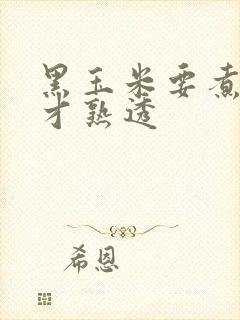 黑玉米要煮
才熟透
希恩